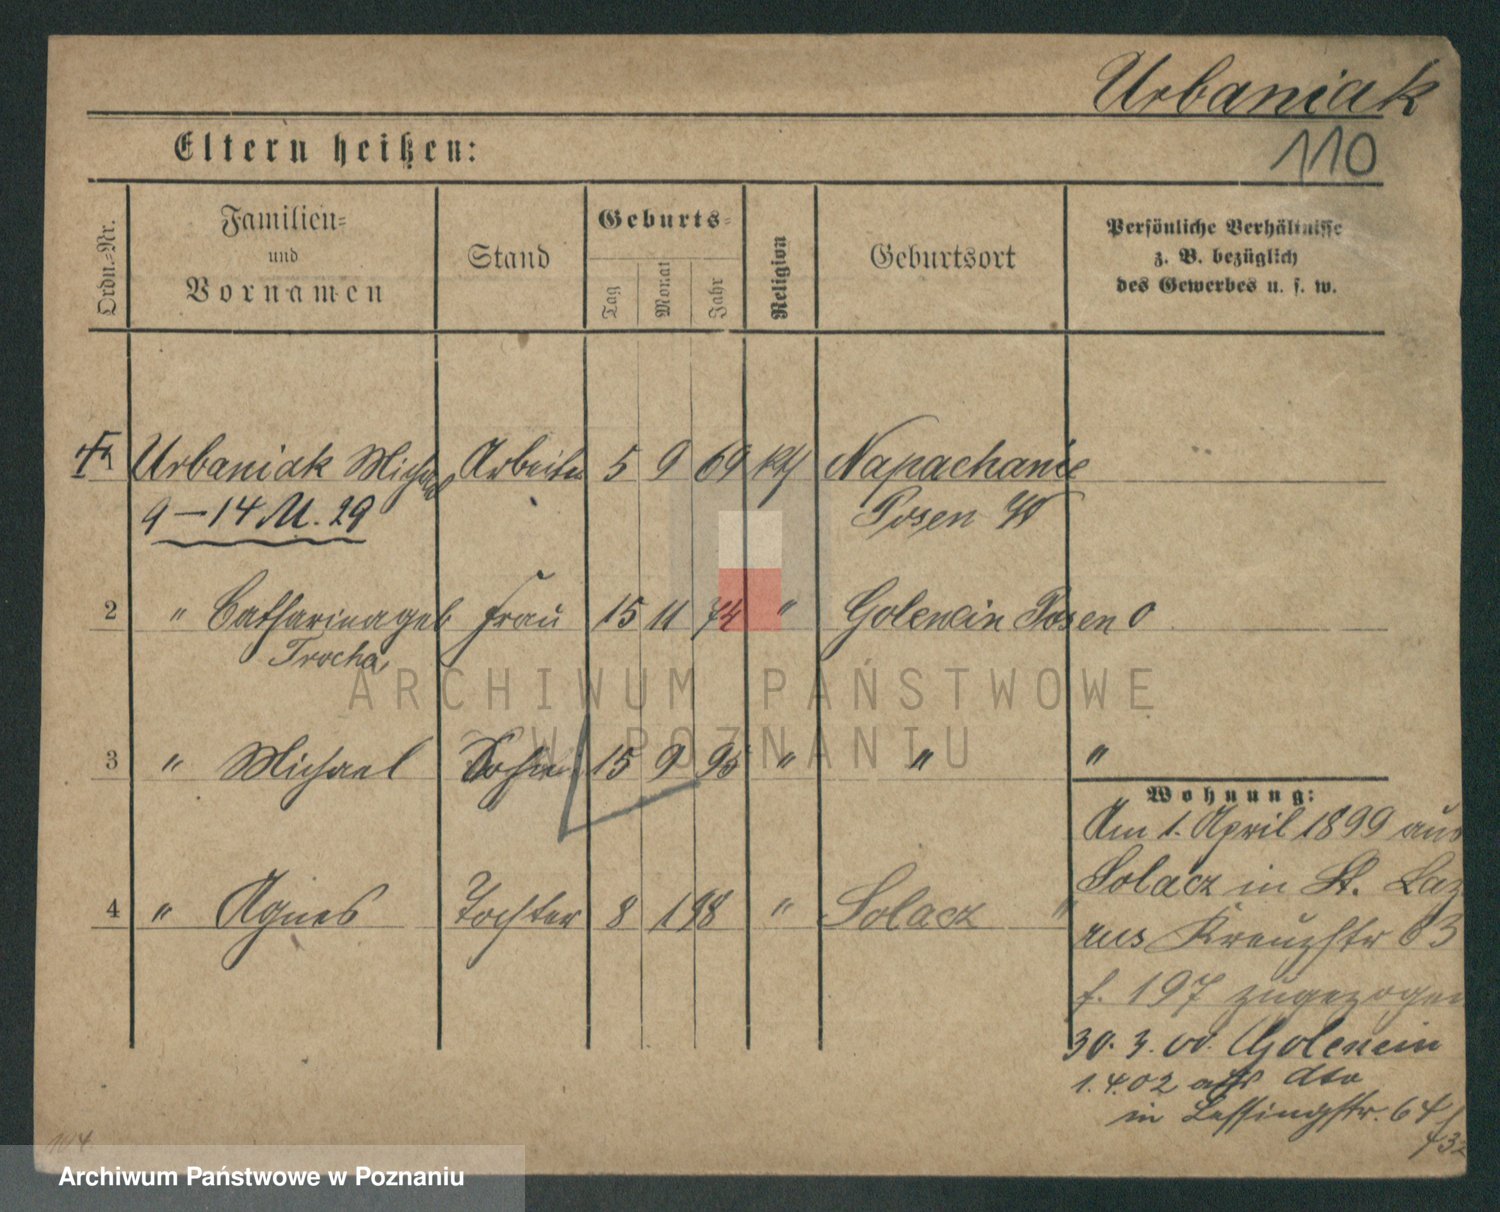 Urbaniak
110
Eltern heißen:
Ordn.-Nr.
Familien-
und
Vornamen
Stand
Geburts-
Tag
Monat
Jahr
Religion
Geburtsort
Persönliche Verhältnisse
z. B. bezüglich
des Gewerbes u. s. w.
1 Urbaniak Michael Arbeiter 5 9 69 kth Napachanie
9 – 14 M. 29 Posen W
2 " Catharina geb Frau 15 11 74 " Golencin Posen O
Trocha
3 " Michael Sohn 15 9 95 " " "
Wohnung:
Am 1. April 1899 aus
Solacz in St. Laz
4 " Agnes Tochter 8 1 98 " Solacz "
rus Kreuzstr 63
f. 197 zugezogen
30. 3. 00. Golencin
1. 4. 02 aus dto
in Lessingstr. 64
ARCHIWUM PAŃSTWOWE
W POZNANIU
Archiwum Państwowe w Poznaniu